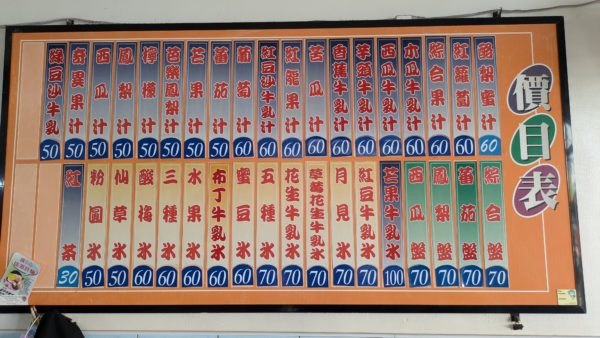 價目表
酪梨蜜汁 60
紅蘿蔔汁 60
綜合果汁 60
木瓜牛乳汁 60
西瓜牛乳汁 60
芋頭牛乳汁 60
香蕉牛乳汁 60
苦瓜汁 60
紅龍果汁 60
紅豆沙牛乳汁 60
葡萄汁 60
蕃茄汁 50
芒果汁 50
芭樂鳳梨汁 50
檸檬汁 50
鳳梨汁 50
西瓜汁 50
奇異果汁 50
綠豆沙牛乳 50
綜合盤 70
蕃茄盤 70
鳳梨盤 70
西瓜盤 70
芒果牛乳冰 100
紅豆牛乳冰 70
月見冰 70
草莓花生牛乳冰 70
花生牛乳冰 70
五種冰 70
蜜豆冰 60
布丁牛乳冰 60
水果冰 60
三種冰 60
酸梅冰 60
仙草冰 50
粉圓冰 50
紅茶 30